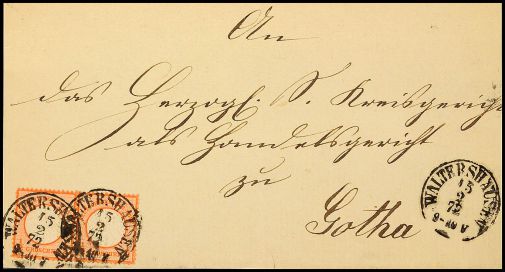 An
das Herzogl. S. Kreisgericht
als Handelsgericht
zu
Gotha
WALTERSHAUSEN
15
2
72
9-10 V
WALTERSHAUSEN
15
2
72
9-10 V
WALTERSHAUSEN
15
2
72
9-10 V